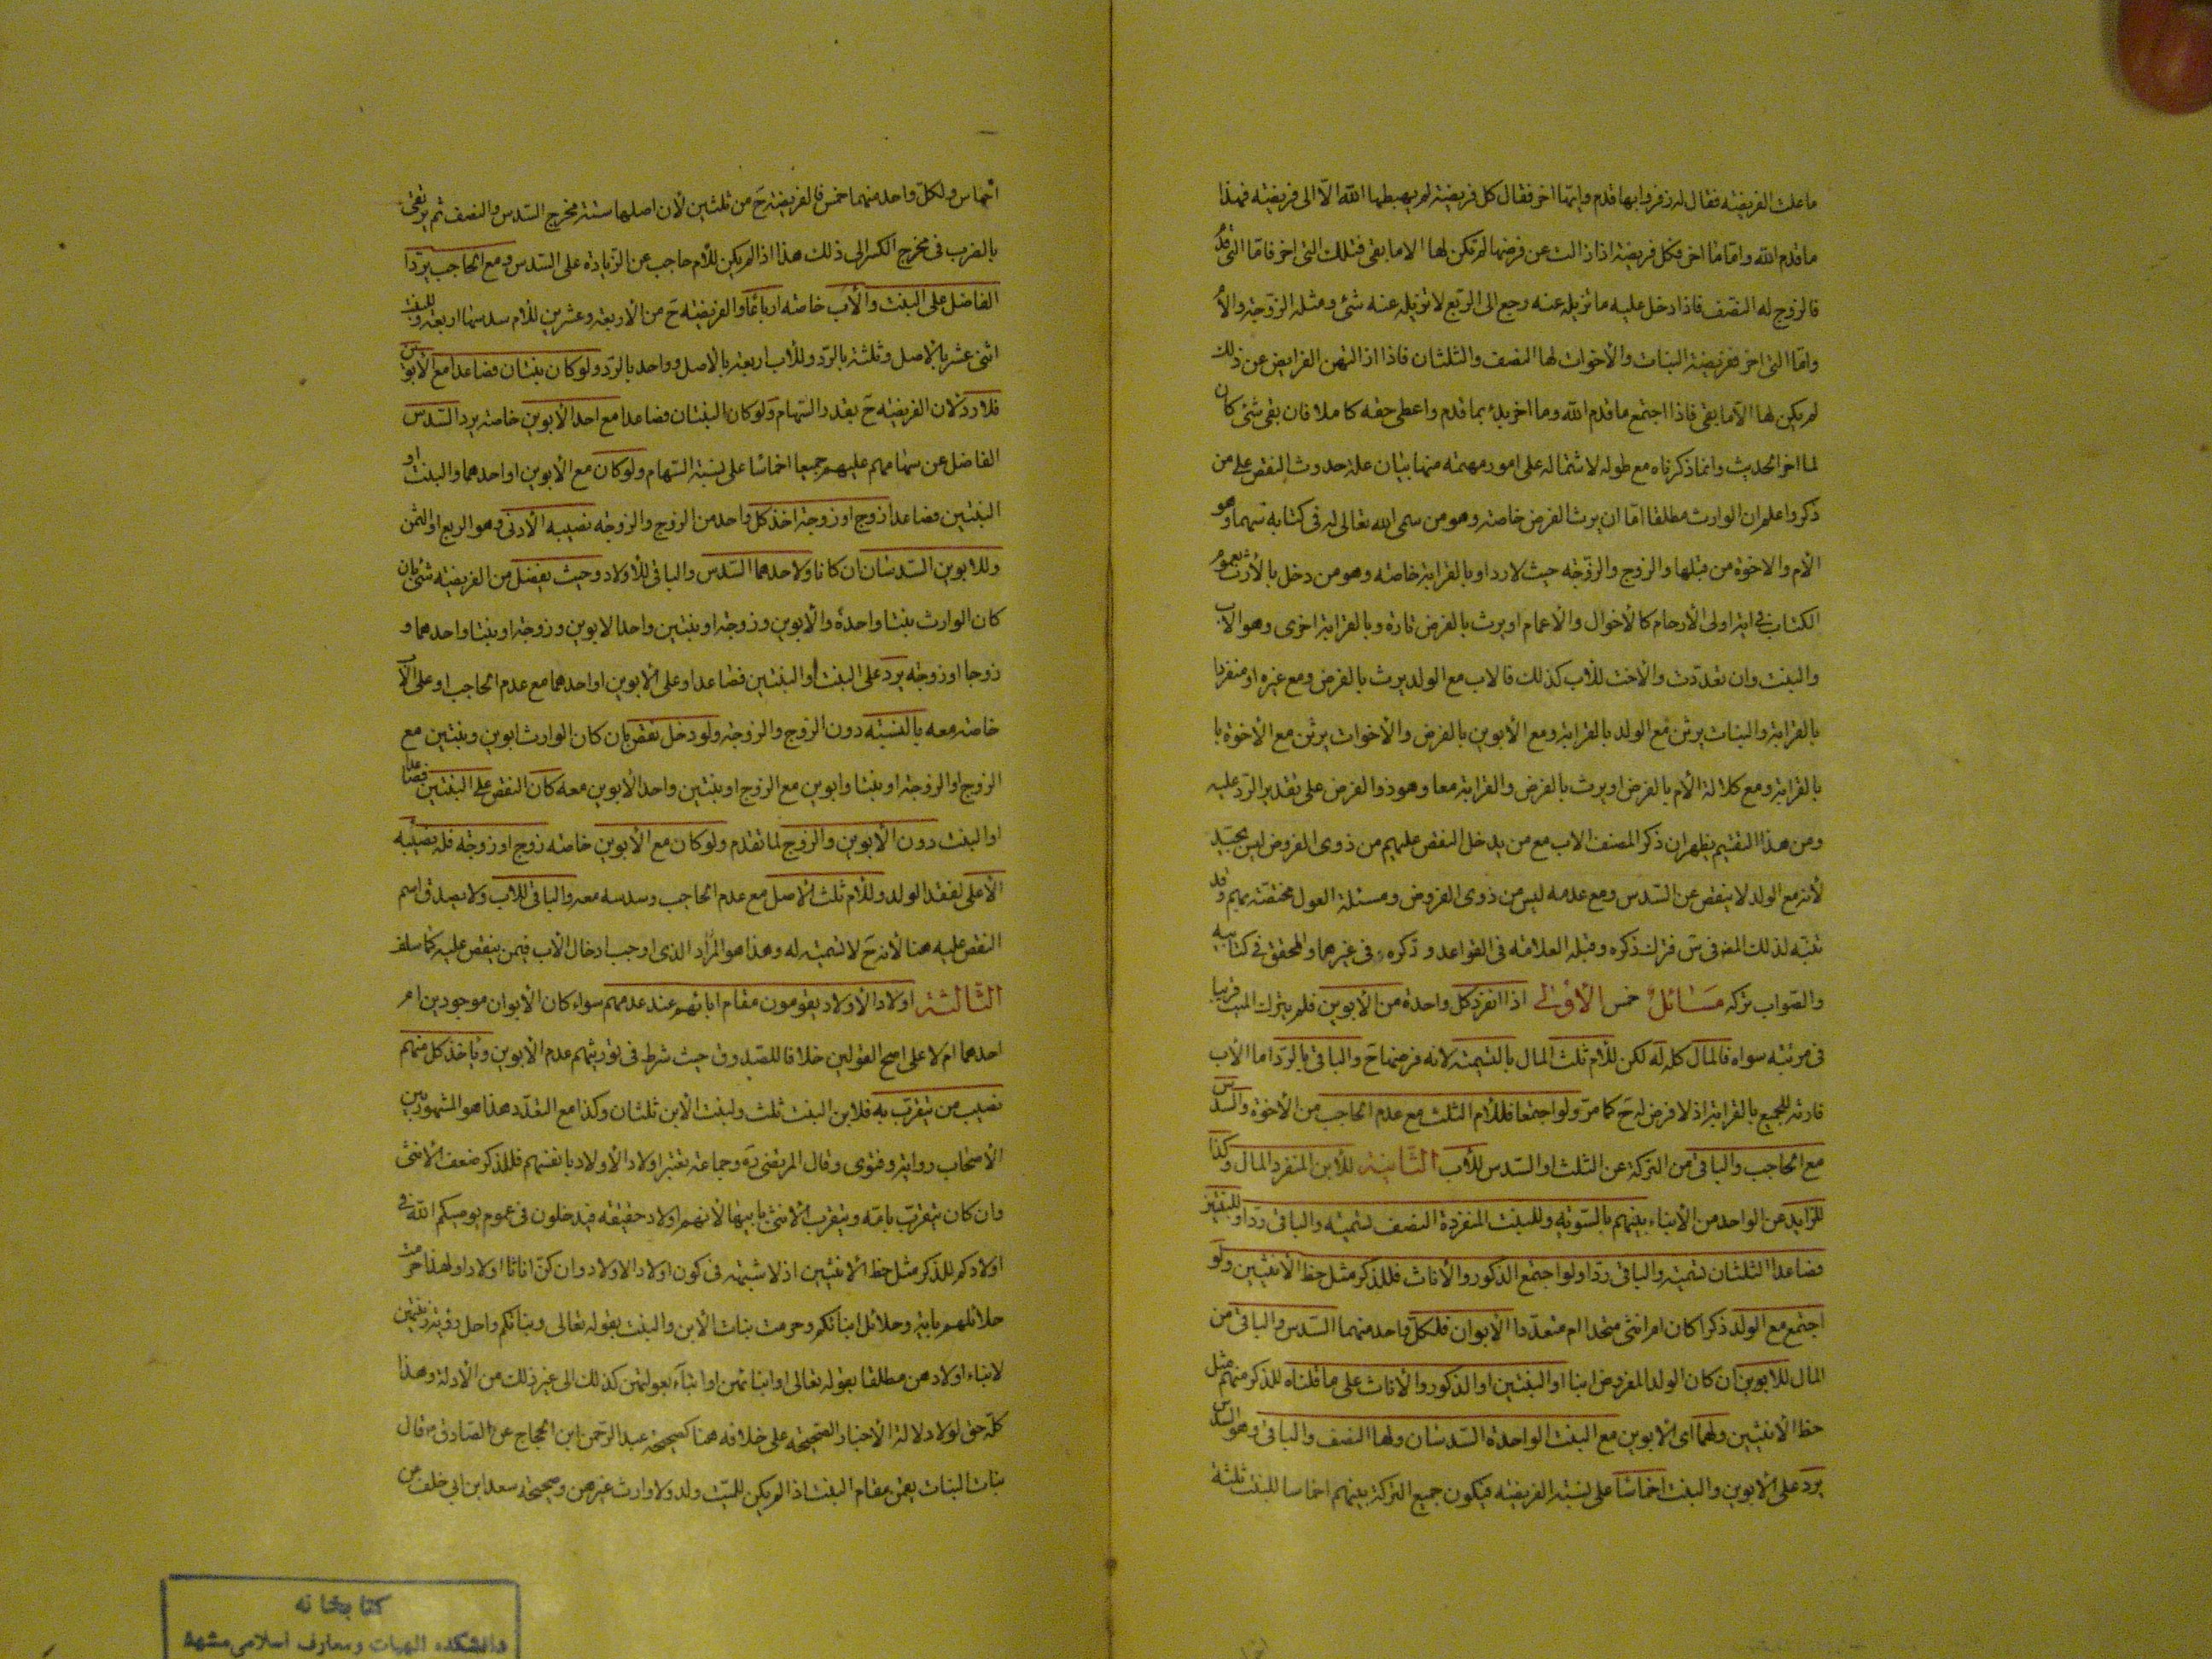 ما علت الفريضة فقال له زفر وايها قدم وايها اخر فقال كل فريضة لم يهبطها الله الا الى فريضة فهذا
ما قدم الله واما ما اخر فكل فريضة اذا زالت عن فرضها لم تكن لها الا ما بقى فتلك التى اخر فاما التى قدم
فالزوج له النصف فاذا دخل عليه ما تزيله عنه رجع الى الربع لا تزيله عنه شئ ومثله الزوجة والام
واما التى اخر ففريضة البنات والاخوات لها النصف والثلثان فاذا ازالتهن الفرايض عن ذلك
لم يكن لها الا ما بقى فاذا اجتمع ما قدم الله وما اخر بدئ بما قدم واعطى حقه كاملا فان بقى شئ كان
لما اخر الحديث وانما ذكرناه مع طوله لاشتماله على امور مهمة منها بيان علة حدوث النقص على من
ذكر واعلم ان الوارث مطلقا اما ان يرث الفرض خاصة وهو من سمى الله تعالى له فى كتابه سهما وهو
الام والاخوة من قبلها والزوج والزوجة حيث لا رد او بالقرابة خاصة وهو من دخل بالارث بعموم
الكتاب فى اية اولى الارحام كالاخوال والاعمام او يرث بالفرض تارة وبالقرابة اخرى وهو الاب
والبنت وان تعددت والاخت للاب كذلك فالاب مع الولد يرث بالفرض ومع غيره او منفردا
بالقرابة والبنات يرثن مع الولد بالقرابة ومع الابوين بالفرض والاخوات يرثن مع الاخوة با
بالقرابة ومع كلالة الام بالفرض او يرث بالفرض والقرابة معا وهو ذو الفرض على تقدير الرد عليه
ومن هذا التقسيم يظهر ان ذكر المصنف الاب مع من يدخل النقص عليهم من ذوى الفروض ليس بجيد
لانه مع الولد لا ينقص عن السدس ومع عدمه ليس من ذوى الفروض ومسئلة العول مختصة بهم وقد
تنبه لذلك المص فى س فترك ذكره وقبله العلامة فى القواعد وذكره فى غيرها والمحقق فى كتابيه
والصواب تركه مسائل خمس الاولى اذا انفرد كل واحدة من الابوين فلم يترك الميت قريبا
فى مرتبته سواه فالمال كله له لكن للام ثلث المال بالتسمية لانه فرضها ح والباقى بالرد اما الاب
فارثه للجميع بالقرابة اذ لا فرض له ح كما مر ولو اجتمعا فللام الثلث مع عدم الحاجب من الاخوة والسدس
مع الحاجب والباقى من التركة عن الثلث او السدس للاب الثانية للابن المنفرد المال وكذا
للزايد من الواحد من الابناء بينهم بالسوية وللبنت المنفردة النصف تسمية والباقى ردا وللبنتين
فصاعدا الثلثان تسمية والباقى ردا ولو اجتمع الذكور والاناث فللذكر مثل حظ الانثيين ولو
اجتمع مع الولد ذكرا كان ام انثى متحدا ام متعددا الابوان فلكل واحد منهما السدس والباقى من
المال للابوين ان كان الولد المفروض ابنا او البنتين او الذكور والاناث على ما قلناه للذكر منهم مثل
حظ الانثيين ولهما اى الابوين مع البنت الواحدة السدسان ولها النصف والباقى وهو السدس
يرد على الابوين والبنت اخماسا على نسبة الفريضة فيكون جميع التركة بينهم اخماسا للبنت ثلثة
اخماس ولكل واحد منهما خمس فالفريضة ح من ثلثين لان اصلها ستة مخرج السدس والنصف ثم يرتقى
بالضرب فى مخرج الكسر الى ذلك هذا اذا لم يكن للام حاجب عن الزيادة على السدس ومع الحاجب يرد
الفاضل على البنت والاب خاصة ارباعا والفريضة ح من الاربعة وعشرين للام سدسها اربعة وللبنت
اثنى عشر بالاصل وثلثة بالرد وللاب اربعة بالاصل وواحد بالرد ولو كان بنتان فصاعدا مع الابوين
فلا رد لان الفريضة ح بقدر السهام ولو كان البنتان فصاعدا مع احد الابوين خاصة يرد السدس
الفاضل عن سهامهم عليهم جميعا اخماسا على نسبة السهام ولو كان مع الابوين او احدهما والبنت او
البنتين فصاعدا زوج او زوجة اخذ كل واحد من الزوج والزوجة نصيبه الادنى وهو الربع او الثمن
وللابوين السدسان ان كانا ولاحدهما السدس والباقى للاولاد وحيث يفضل من الفريضة شئ بان
كان الوارث بنتا واحدة والابوين وزوجة او بنتين واحد الابوين وزوجة او بنتا واحدهما و
زوجا او زوجة يرد على البنت او البنتين فصاعدا وعلى الابوين او احدهما مع عدم الحاجب او على الاب
خاصة معه بالنسبة دون الزوج والزوجة ولو دخل نقص بان كان الوارث ابوين وبنتين مع
الزوج او الزوجة او بنتا وابوين مع الزوج او بنتين واحد الابوين معه كان النقص على البنتين فصاعدا
او البنت دون الابوين والزوج لما تقدم ولو كان مع الابوين خاصة زوج او زوجة فله نصيبه
الاعلى لفقد الولد وللام ثلث الاصل مع عدم الحاجب وسدسه معه والباقى للاب ولا يصدق اسم
النقص عليه هنا لانه ح لا تسمية له وهذا هو المراد الذى اوجب ادخال الاب فيمن ينقص عليه كما سلف
الثالثة اولاد الاولاد يقومون مقام ابائهم عند عدمهم سواء كان الابوان موجودين ام
احدهما ام لا على اصح القولين خلافا للصدوق حيث شرط فى توريثهم عدم الابوين وياخذ كل منهم
نصيب من يتقرب به فلابن البنت ثلث ولبنت الابن ثلثان وكذا مع التعدد هذا هو المشهور بين
الاصحاب رواية وفتوى وقال المرتضى ره وجماعة تعتبر اولاد الاولاد بانفسهم فللذكر ضعف الانثى
وان كان يتقرب بامه ويتقرب الانثى بابيها لانهم اولاد حقيقة فيدخلون فى عموم يوصيكم الله فى
اولادكم للذكر مثل حظ الانثيين اذ لا شبهة فى كون اولاد الاولاد وان كن اناثا اولادا ولهذا حرمت
حلائلهم باية وحلائل ابنائكم وحرمت بنات الابن والبنت بقوله تعالى وبناتكم واحل رؤية زينتهن
لابناء اولادهن مطلقا بقوله تعالى او ابنائهن او ابناء بعولتهن كذلك الى غير ذلك من الادلة وهذا
كله حق لولا دلالة الاخبار الصحيحة على خلافه هنا كصحيحة عبد الرحمن ابن الحجاج عن الصادق قال
بنات البنات يقمن مقام البنت اذا لم يكن للميت ولد ولا وارث غيرهن وصحيحة سعد ابن ابي خلف عن
كتابخانه
دانشكده الهيات ومعارف اسلامى مشهد